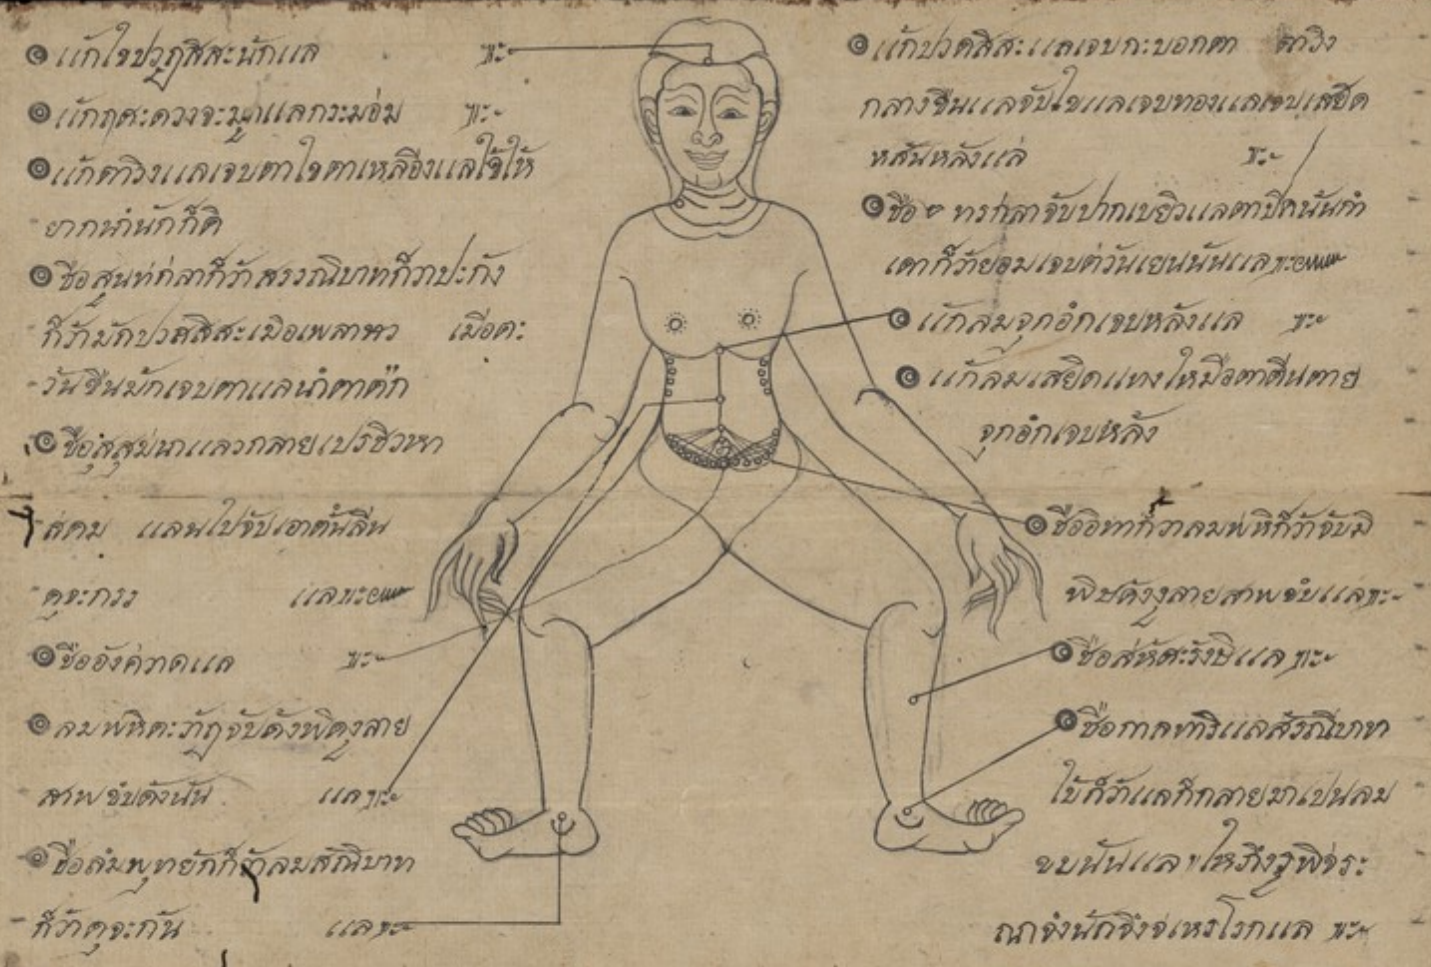 แก้ไขปวฏสิสะนักแล ฃะ
แก้กฤศะดวงจะมูกแลกระมอ่ม ฃะ
แก้ตาวิงแลเจบตาใขตาเหลีองแลใข้ให้
ยากนำนักก็ดี
ชือสุนทก่ลาก็ว่าสรรณิบาทก็ว่าปะกัง
ก็ว่ามักปวดสิสะเมือเพลาหว เมือตะ
วันขืนมักเจบตาแลนำตาตก
ชือสุสุมนาแลวกลายเปรชิวหา
สดม แลนไปจับเอาต้นลิ้น
ดุจะกรร แลฃะ
ชืออังคพาดแล ฃะ
ลมพหิตะวาฏจับดังพิศงูลาย
สาพขบดังนัน แลฃะ
ชือลมพุทยักก็ว่าลมสณิบาท
ก็ว่าดุจะกัน แลฃะ
แก้ปวดสิสะแลเจบกะบอกตา ตาวิง
กลางขืนแลจับไขแลเจบทองแลเจบเสยีด
หสันหลังแล ฃะ
ชือ ทรก่ลาจับปากเบยิวแลตาปิดนันกำ
เดาก็ว่ายอมเจบตวันเยนนันแลฃะ
แก้ลมจุกอกเจบหลังแล ฃะ
แก้ลมเสยิดแทงใหมือตาตีนตาย
จุกอกเจบหลัง
ชืออิทาก็ว่าลมพหิก็ว่าจับมี
พิษดังงูลายสาพขบแลฃะ
ชือสหัศะรังษิแล ฃะ
ชือกาลทารีแลสรรณีบาท
ไข้ก็ว่าแลก็กลายมาเปนลม
ขบนันแล ใหรึงรูพิจาระ
ณาจงนักจึงจเหนโรกแล ฃะ